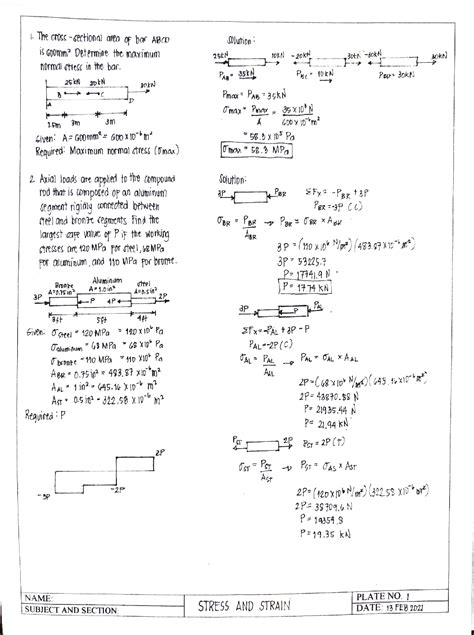 1. The cross-sectional area of bar ABCD
is 600mm². Determine the maximum
normal stress in the bar.
25 kN 30kN 30kN
A B C D
1.5m 3m 3m
Given: A = 600mm² = 600 x10⁻⁶ m²
Required: Maximum normal stress (σmax)
Solution:
PAB = 35kN
Pmax = PAB = 35kN
σmax = Pmax / A = 35 x 10³ N / 600 x10⁻⁶ m²
= 58.3 x 10⁶ Pa
σmax = 58.3 MPa
2. Axial loads are applied to the compound
rod that is composed of an aluminum
segment rigidly connected between
steel and bronze segments. Find the
largest safe value of P if the working
stresses are 120 MPa for steel, 68 MPa
for aluminum, and 110 MPa for bronze.
Bronze Aluminum steel
A=1.0in²
3P P 4P 2P
5ft 4ft
Given: σsteel = 120 MPa = 120 x 10⁶ Pa
σaluminum = 68 MPa = 68 x 10⁶ Pa
σbronze = 110 MPa = 110 x 10⁶ Pa
ABR = 0.75 in² = 483.87 x10⁻⁶ m²
AAL = 1 in² = 645.16 x 10⁻⁶ m²
AST = 0.5 in² = 322.58 x10⁻⁶ m²
Required: P
2P
-3P
-2P
Solution:
3P PBR
ΣFx = -PBR + 3P
PBR = -3P (C)
σBR = PBR / ABR → PBR = σBR x ABR
3P = (110 x 10⁶ N/m²)(483.87 x10⁻⁶ m²)
3P = 53225.7
P = 17741.9 N
P = 17.74 kN
3P P PAL
ΣFx = -PAL + 3P - P
PAL = -2P (C)
σAL = PAL / AAL → PAL = σAL x AAL
2P = (68 x10⁶ N/m²)(645.16 x10⁻⁶ m²)
2P = 43870.88 N
P = 21935.44 N
P = 21.94 kN
PST 2P
PST = 2P (T)
σST = PST / AST → PST = σAS x AST
2P = (120 x10⁶ N/m²)(322.58 x10⁻⁶ m²)
2P = 38709.6 N
P = 19354.8
P = 19.35 kN
NAME:
SUBJECT AND SECTION:
STRESS AND STRAIN
PLATE NO. 1
DATE: 13 FEB 2021